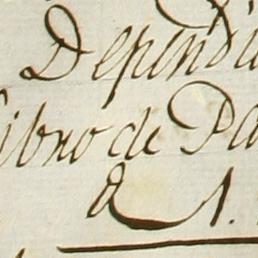 Dependi
Libro de Pa
a 1.